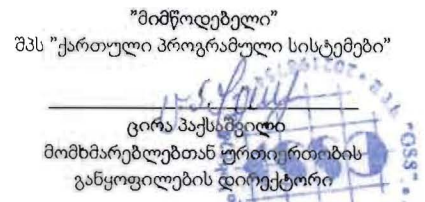 "მიმწოდებელი"
შპს "ქართული პროგრამული სისტემები"
ცირა პაქსაშვილი
მომხმარებლებთან ურთიერთობის
განყოფილების დირექტორი